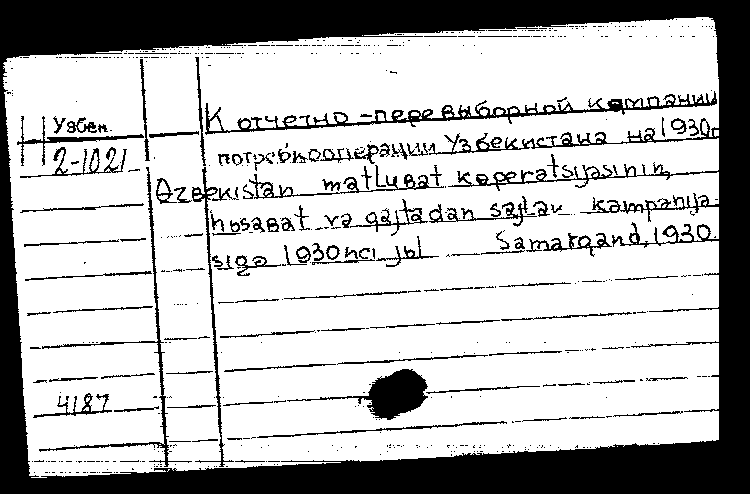 Узбек.
2-1021
К отчетно-перевыборной кампании
потребкооперации Узбекистана на 1930г
Өzbekistan matlubat kaperatsijasinin,
hisabat və qajtadan sajlav kampanija-
sigə 1930nci jьl Samarqand, 1930.
4187